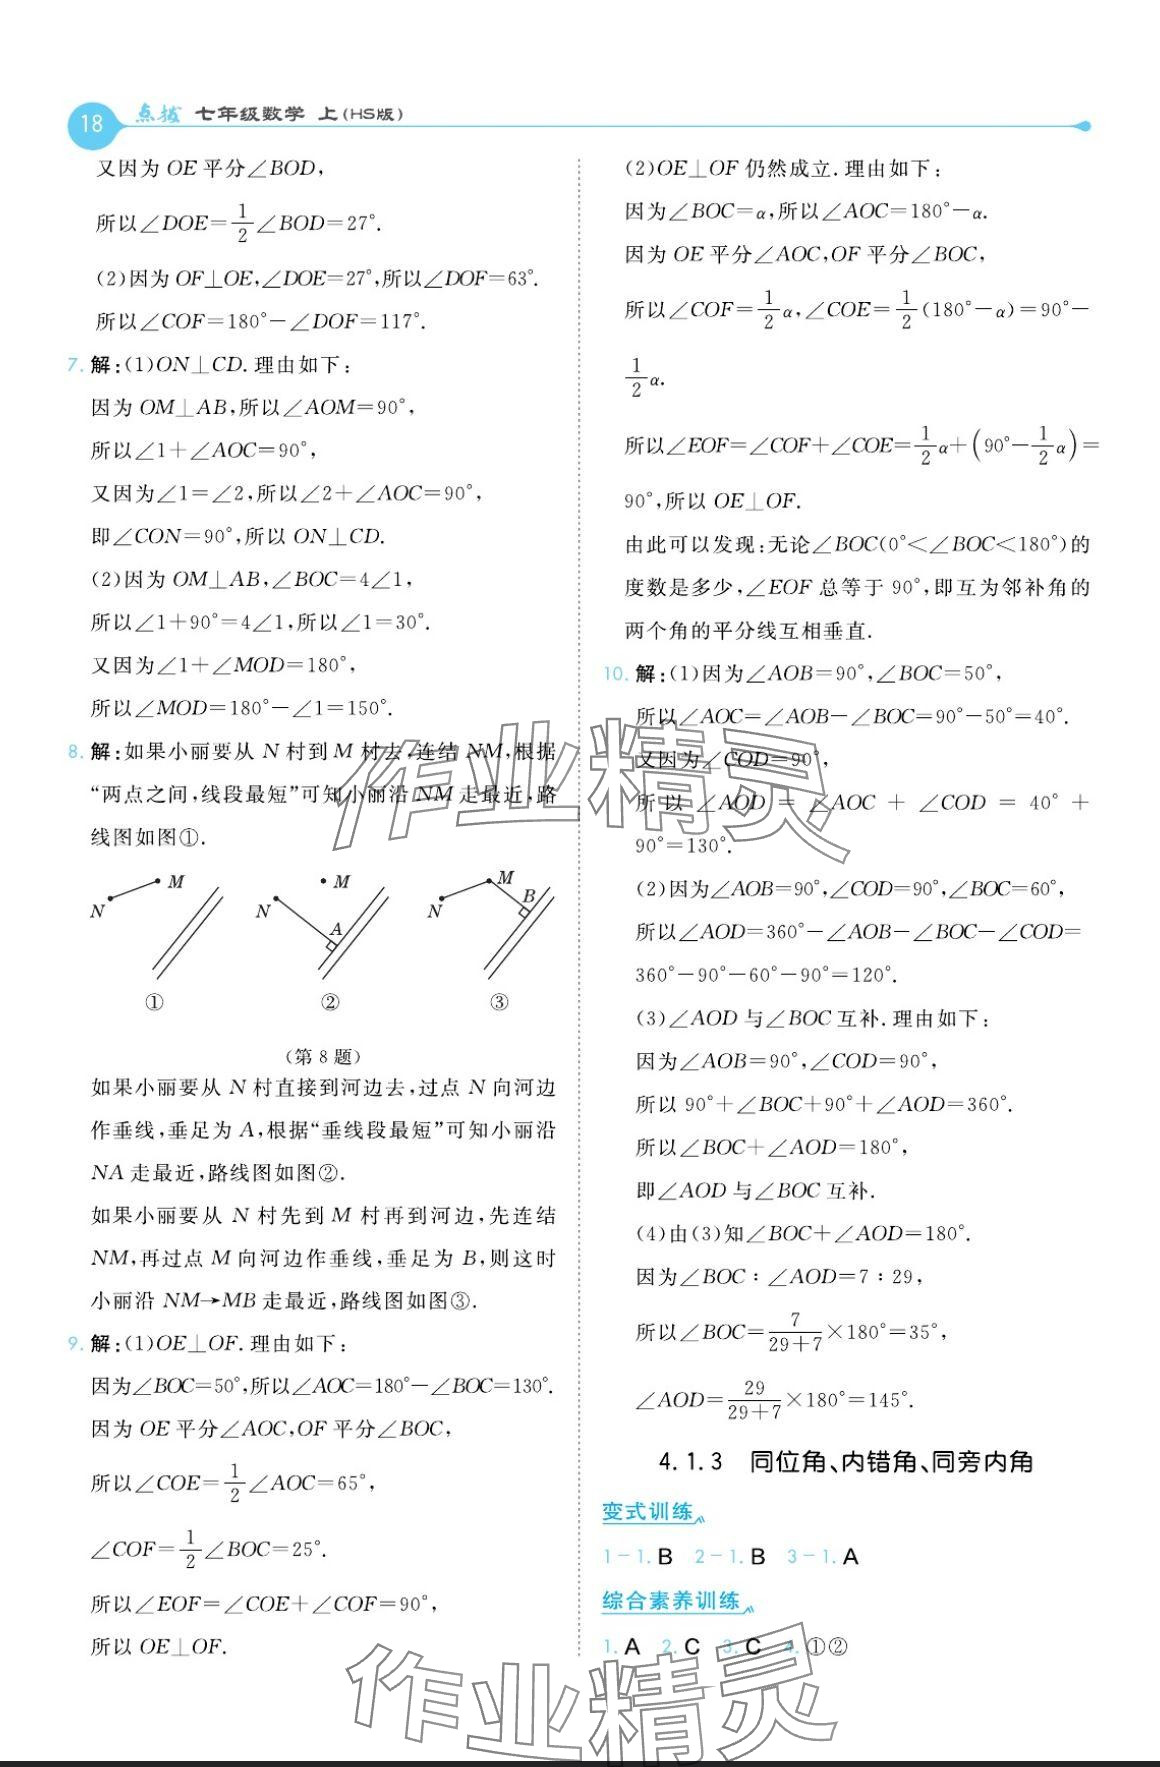 18 点拨 七年级数学 上(HS版)
又因为 OE 平分∠BOD,
所以∠DOE=1/2∠BOD=27°.
(2)因为 OF⊥OE,∠DOE=27°,所以∠DOF=63°.
所以∠COF=180°-∠DOF=117°.
7. 解:(1)ON⊥CD. 理由如下:
因为 OM⊥AB,所以∠AOM=90°,
所以∠1+∠AOC=90°,
又因为∠1=∠2,所以∠2+∠AOC=90°,
即∠CON=90°,所以 ON⊥CD.
(2)因为 OM⊥AB,∠BOC=4∠1,
所以∠1+90°=4∠1,所以∠1=30°.
又因为∠1+∠MOD=180°,
所以∠MOD=180°-∠1=150°.
8. 解:如果小丽要从 N 村到 M 村去,连结 NM,根据
“两点之间,线段最短”可知小丽沿 NM 走最近,路
线图如图①.
M N ①
M N A ②
M N B ③
(第 8 题)
如果小丽要从 N 村直接到河边去,过点 N 向河边
作垂线,垂足为 A,根据“垂线段最短”可知小丽沿
NA 走最近,路线图如图②.
如果小丽要从 N 村先到 M 村再到河边,先连结
NM,再过点 M 向河边作垂线,垂足为 B,则这时
小丽沿 NM→MB 走最近,路线图如图③.
9. 解:(1)OE⊥OF. 理由如下:
因为∠BOC=50°,所以∠AOC=180°-∠BOC=130°.
因为 OE 平分∠AOC,OF 平分∠BOC,
所以∠COE=1/2∠AOC=65°,
∠COF=1/2∠BOC=25°.
所以∠EOF=∠COE+∠COF=90°,
所以 OE⊥OF.
(2)OE⊥OF 仍然成立. 理由如下:
因为∠BOC=α,所以∠AOC=180°-α.
因为 OE 平分∠AOC,OF 平分∠BOC,
所以∠COF=1/2α,∠COE=1/2(180°-α)=90°-
1/2α.
所以∠EOF=∠COF+∠COE=1/2α+(90°-1/2α)=
90°,所以 OE⊥OF.
由此可以发现:无论∠BOC(0°<∠BOC<180°)的
度数是多少,∠EOF 总等于 90°,即互为邻补角的
两个角的平分线互相垂直.
10. 解:(1)因为∠AOB=90°,∠BOC=50°,
所以∠AOC=∠AOB-∠BOC=90°-50°=40°.
又因为∠COD=90°,
所以∠AOD=∠AOC+∠COD=40°+
90°=130°.
(2)因为∠AOB=90°,∠COD=90°,∠BOC=60°,
所以∠AOD=360°-∠AOB-∠BOC-∠COD=
360°-90°-60°-90°=120°.
(3)∠AOD 与∠BOC 互补. 理由如下:
因为∠AOB=90°,∠COD=90°,
所以 90°+∠BOC+90°+∠AOD=360°.
所以∠BOC+∠AOD=180°,
即∠AOD 与∠BOC 互补.
(4)由(3)知∠BOC+∠AOD=180°.
因为∠BOC:∠AOD=7:29,
所以∠BOC=7/(29+7)×180°=35°,
∠AOD=29/(29+7)×180°=145°.
4.1.3 同位角、内错角、同旁内角
变式训练
1-1. B 2-1. B 3-1. A
综合素养训练
1. A 2. C 3. C 4. ①②
作业精灵
作业精灵